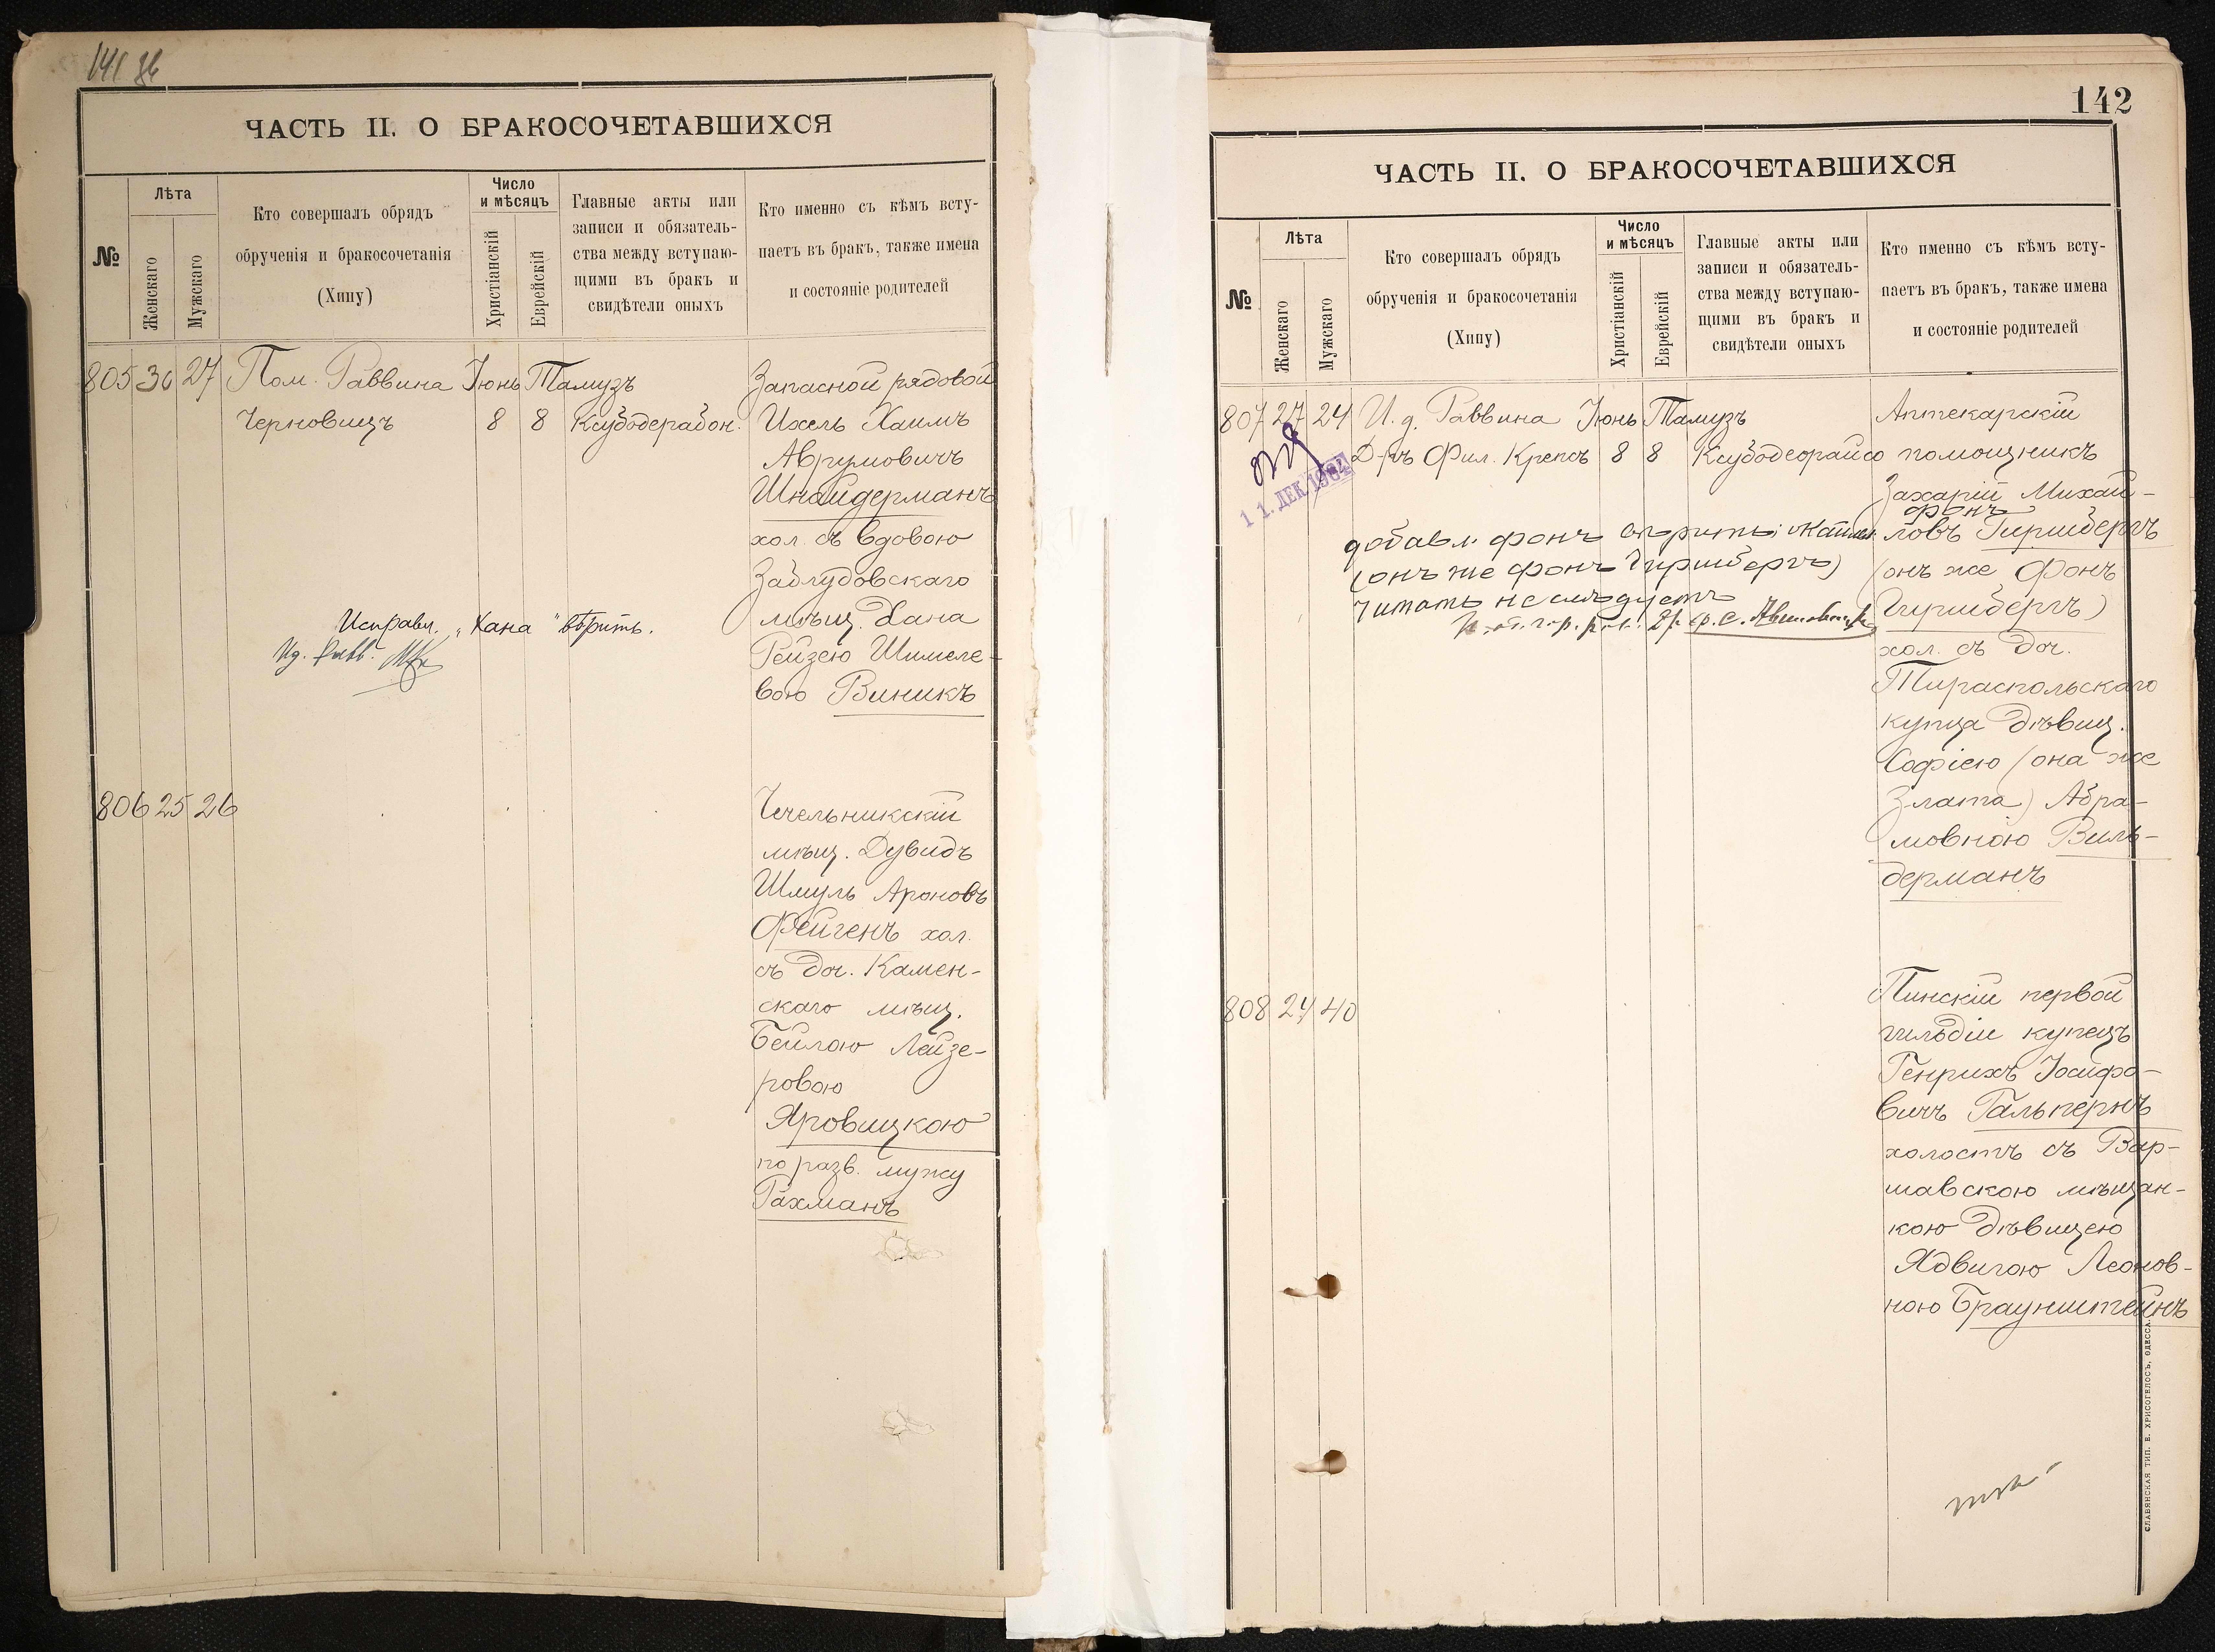 141
ЧАСТЬ II. О БРАКОСОЧЕТАВШИХСЯ
№
Лѣта
Женскаго
Мужскаго
Кто совершалъ обрядъ
обрученія и бракосочетанія
(Хипу)
Число
и мѣсяцъ
Христіанскій
Еврейскій
Главные акты или
записи и обязатель-
ства между вступаю-
щими въ бракъ и
свидѣтели оныхъ
Кто именно съ кѣмъ всту-
паетъ въ бракъ, также имена
и состояніе родителей
805 30 27 Пом. Раввина Іюнь Тамузъ
Черновицъ 8 8
Запасной рядовой
Ихель Хаимъ
Аврумовичъ
Шнайдерманъ
хол. съ вдовою
Заблудовскаго
мѣщ. Хана
Рейзею Шимеле-
вою Виникъ
Исправл. „Хана" вѣрить.
И д. Равв.
806 25 26
Чечельникскій
мѣщ. Дувидъ
Шмуль Ароновъ
Фейгенъ хол.
съ доч. Камен-
скаго мѣщ.
Бейлою Лейзе-
ровою
Яровицкою
по разв. мужу
Рахманъ
142
ЧАСТЬ II. О БРАКОСОЧЕТАВШИХСЯ
№
Лѣта
Женскаго
Мужскаго
Кто совершалъ обрядъ
обрученія и бракосочетанія
(Хипу)
Число
и мѣсяцъ
Христіанскій
Еврейскій
Главные акты или
записи и обязатель-
ства между вступаю-
щими въ бракъ и
свидѣтели оныхъ
Кто именно съ кѣмъ всту-
паетъ въ бракъ, также имена
и состояніе родителей
807 27 24 И. д. Раввина Іюнь Тамузъ
Д-ръ Фил. Крепсъ 8 8
11. ДЕК 1964
Аптекарскій
помощникъ
Захарій Михай-
фонъ
ловъ Гиршбергъ
(онъ же Фонъ
Гиршбергъ)
хол. съ доч.
Тираспольскаго
купца дѣвиц.
Софіею (она же
Злата) Абра-
мовною Виль-
дерманъ
добавл. фонъ
(онъ же фонъ Гиршбергъ)
читать не слѣдуетъ
808 24 40
Пинскій первой
гильдіи купецъ
Генрихъ Іосифо-
вичъ Гальпернъ
холостъ съ Вар-
шавскою мѣщан-
кою дѣвицею
Ядвигою Леонов-
ною Браунштейнъ
СЛАВЯНСКАЯ ТИП. В. ХРИСОГЕЛОСЪ, ОДЕССА.